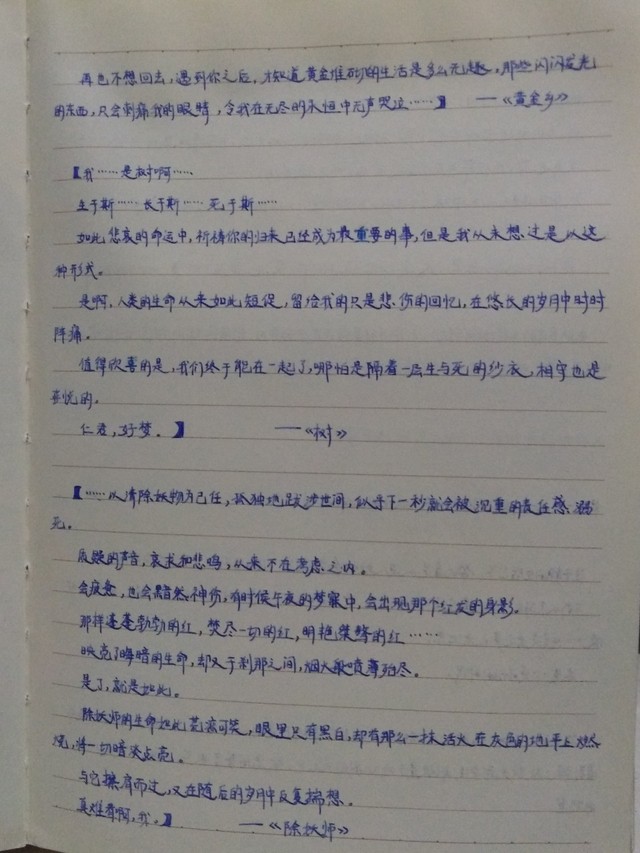 再也不想回去，遇到你之后，才知道黄金堆砌的生活是多么无趣，那些闪闪发光
的东西，只会刺痛我的眼睛，令我在无尽的永恒中无声哭泣……】 ——《黄金乡》
【我……是树啊……
生于斯……长于斯……死于斯……
如此悲哀的命运中，祈祷你的归来已经成为最重要的事，但是我从未想过是以这
种形式。
是啊，人类的生命从来如此短促，留给我的只是悲伤的回忆，在悠长的岁月中时时
阵痛。
值得欣喜的是，我们终于能在一起了，哪怕是隔着一层生与死的纱衣，相守也是
喜悦的。
仁君，好梦。】 ——《树》
【……以清除妖物为己任，孤独地跋涉世间，似乎下一秒就会被沉重的责任感溺
死。
质疑的声音，哀求和悲鸣，从来不在考虑之内。
会疲惫，也会黯然神伤，有时候午夜的梦寐中，会出现那个红发的身影。
那样蓬蓬勃勃的红，焚尽一切的红，明艳桀骜的红……
映亮了晦暗的生命，却又于刹那之间，烟火般喷薄殆尽。
是了，就是如此。
除妖师的生命如此荒凉可笑，眼里只有黑白，却有那么一抹活火在灰色的地平上燃
烧，将一切暗淡点亮。
与它擦肩而过，又在随后的岁月中反复揣想。
真难看啊，我。】 ——《除妖师》